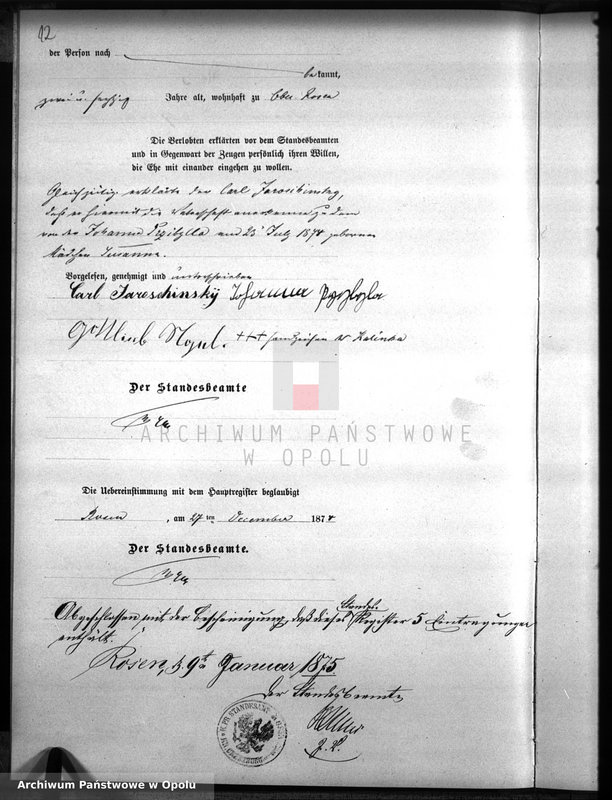 12
der Person nach
bekannt,
zwei u. sechzig Jahre alt, wohnhaft zu Ober Rosen
Die Verlobten erklärten vor dem Standesbeamten
und in Gegenwart der Zeugen persönlich ihren Willen,
die Ehe mit einander eingehen zu wollen.
Gleichzeitig erklärte der Carl
daß er hiermit die Vaterschaft anerkenne zu dem
von der Johanna am 23 July 1874 geborenen
Mädchen Susanna.
Vorgelesen, genehmigt und unterschrieben
Carl Jareschinsky Johanna
Gottlieb +++ Handzeichen Kalinka
Der Standesbeamte
ARCHIWUM PAŃSTWOWE
W OPOLU
Die Uebereinstimmung mit dem Hauptregister beglaubigt
Rosen, am 27ten December 1874
Der Standesbeamte.
Abgeschlossen mit der Bescheinigung, daß dieses Standes-Register 5 Eintragungen
enthält.
Rosen, d. 9t Januar 1875
Der Standesbeamte
Archiwum Państwowe w Opolu